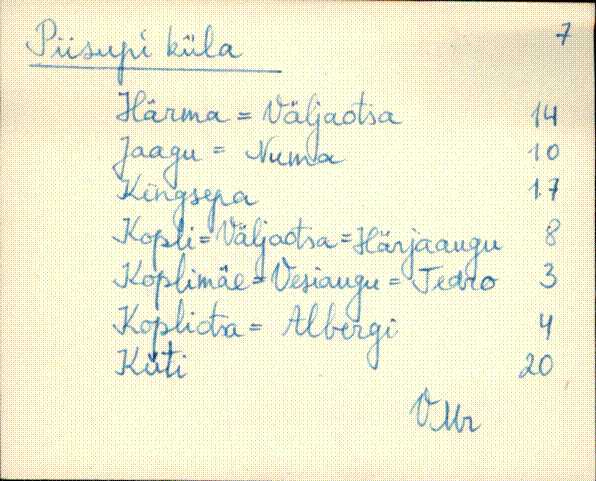 Piisupi küla 7
Härma = Väljaotsa 14
Jaagu = Numa 10
Kingsepa 17
Kopli = Väljaotsa = Härjaaugu 8
Koplimäe = Vesiaugu = Tedro 3
Kopliotsa = Albergi 4
Küti 20
VMr